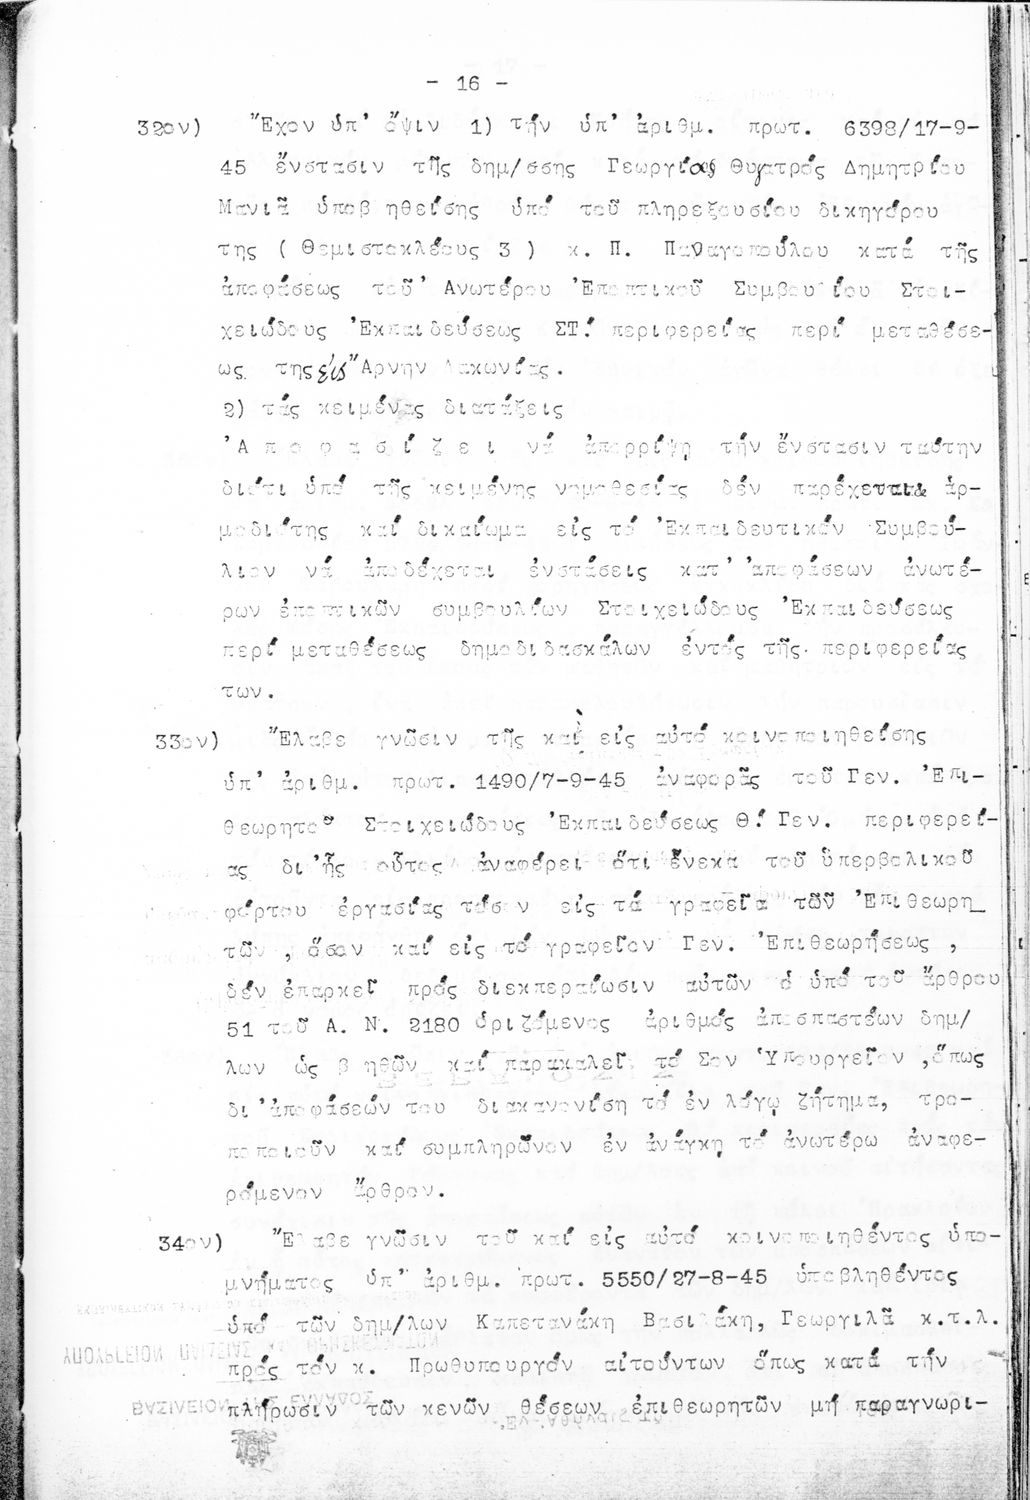 - 16 -
32ον) Ἔχον ὑπ' ὄψιν 1) τήν ὑπ' ἀριθμ. πρωτ. 6398/17-9-
45 ἔνστασιν τῆς δημ/σσης Γεωργίας θυγατρός Δημητρίου
Μανιᾶ ὑποβληθείσης ὑπό τοῦ πληρεξουσίου δικηγόρου
της ( Θεμιστοκλέους 3 ) κ. Π. Παναγοπούλου κατά τῆς
ἀποφάσεως τοῦ Ἀνωτέρου Ἐποπτικοῦ Συμβουλίου Στοι-
χειώδους Ἐκπαιδεύσεως ΣΤ! περιφερείας περί μεταθέσε-
ως της εἰς Ἄρνην Λακωνίας.
2) τάς κειμένας διατάξεις
Ἀ π ο φ α σ ί ζ ε ι νά ἀπορρίψῃ τήν ἔνστασιν ταύτην
διότι ὑπό τῆς κειμένης νομοθεσίας δέν παρέχεται ἁρ-
μοδιότης καί δικαίωμα εἰς τό Ἐκπαιδευτικόν Συμβού-
λιον νά ἀποδέχεται ἐνστάσεις κατ' ἀποφάσεων ἀνωτέ-
ρων ἐποπτικῶν συμβουλίων Στοιχειώδους Ἐκπαιδεύσεως
περί μεταθέσεως δημοδιδασκάλων ἐντός τῆς περιφερείας
των.
33ον) Ἔλαβε γνῶσιν τῆς καί εἰς αὐτό κοινοποιηθείσης
ὑπ' ἀριθμ. πρωτ. 1490/7-9-45 ἀναφορᾶς τοῦ Γεν. Ἐπι-
θεωρητοῦ Στοιχειώδους Ἐκπαιδεύσεως Θ! Γεν. περιφερεί-
ας δι'ἧς οὗτος ἀναφέρει ὅτι ἕνεκα τοῦ ὑπερβολικοῦ
φόρτου ἐργασίας τόσον εἰς τά γραφεῖα τῶν Ἐπιθεωρη_
τῶν , ὅσον καί εἰς τό γραφεῖον Γεν. Ἐπιθεωρήσεως ,
δέν ἐπαρκεῖ πρός διεκπεραίωσιν αὐτῶν ὁ ὑπό τοῦ ἄρθρου
51 τοῦ Α. Ν. 2180 ὁριζόμενος ἀριθμός ἀποσπαστέων δημ/
λων ὡς βοηθῶν καί παρακαλεῖ τό Σον Ὑπουργεῖον ,ὅπως
δι'ἀποφάσεών του διακανονίσῃ τό ἐν λόγῳ ζήτημα, τρο-
ποποιοῦν καί συμπληρῶνον ἐν ἀνάγκῃ τό ἀνωτέρω ἀναφε-
ρόμενον ἄρθρον.
34ον) Ἔλαβε γνῶσιν τοῦ καί εἰς αὐτό κοινοποιηθέντος ὑπο-
μνήματος ὑπ' ἀριθμ. πρωτ. 5550/27-8-45 ὑποβληθέντος
ὑπό τῶν δημ/λων Καπετανάκη Βασιλάκη, Γεωργιλᾶ κ.τ.λ.
πρός τόν κ. Πρωθυπουργόν αἰτούντων ὅπως κατά τήν
πλήρωσιν τῶν κενῶν θέσεων ἐπιθεωρητῶν μή παραγνωρι-